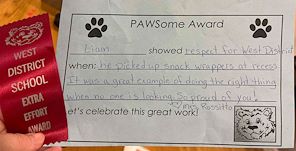 WEST
DISTRICT
SCHOOL
EXTRA
EFFORT
AWARD
PAWSome Award
Liam showed respect for West District
when: he picked up snack wrappers at recess.
It was a great example of doing the right thing
when no one is looking. So proud of you!
Let's celebrate this great work! Mrs Rossitto